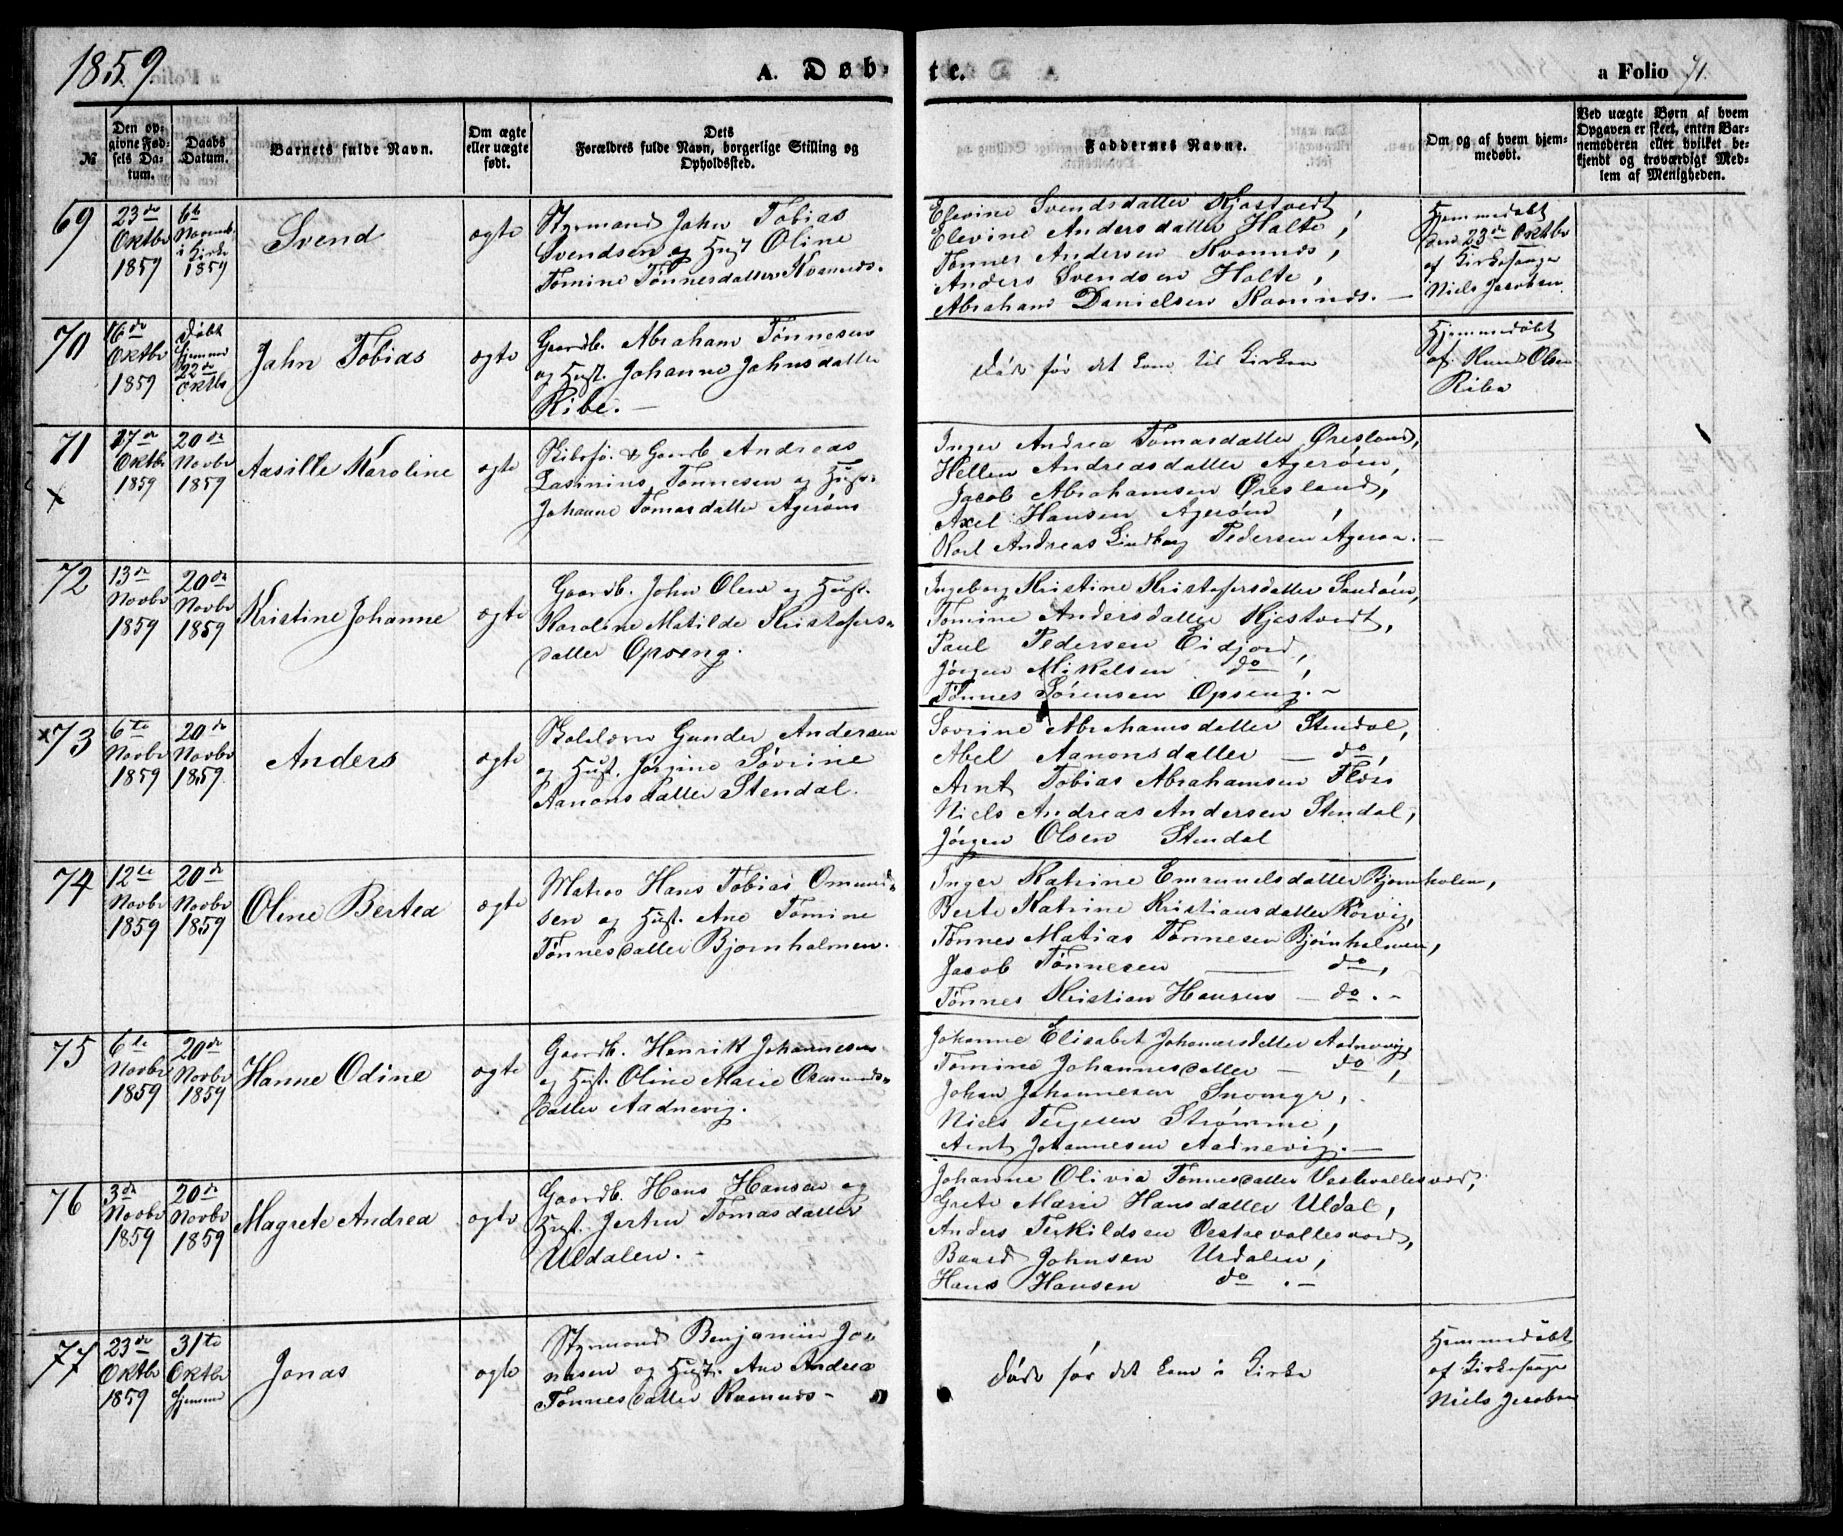 1859.
A. Døb-
te.
a Folio 71.
№
Den op-
givne Fød-
sels Da-
tum.
Daabs
Datum.
Barnets fulde Navn.
Om ægte
eller uægte
født.
Dets
Forældres fulde Navn, borgerlige Stilling og
Opholdssted.
Faddernes Navne.
Om og af hvem hjem-
medøbt.
Ved uægte Børn af hvem
Opgaven er skeet, enten Bar-
nemoderen eller hvilket be-
kjendt og troværdigt Med-
lem af Menigheden.
69
23de
Oktbr
1859
6te
Novemb
i Kirke
1859
Svend
ægte
Styrmand Jahn Tobias
Svendsen og Hust Oline
Tomine Tønnesdatter
Elevine Svendsdatter Kjøstvedt,
Elevine Andersdatter Holte,
Tønnes Andersen
Anders Svendsen Holte,
Abraham Danielsen
Hjemmedøbt
den 23de Oktbr
af Kirkesanger
Niels Jacobsen
70
16de
Oktbr
1859
døbt
hjemme
22de
Oktb
Jahn Tobias
ægte
Gaardb. Abraham Tønnesen
og Hust. Johanne Jahnsdatter
Ribe. —
Døde før det kom til Kirken
Hjemmedøbt
af Knud Olsen
Ribe
71
x
17de
Oktbr
1859
20de
Novbr
1859
Aasille Karoline
ægte
Skibsfø. & Gaardb Andreas
Lasinius Tønnesen og Hust
Johanne Tomasdatter Agerøen
Inger Andrea Tomasdatter Øresland,
Hellene Andreasdatter Agerøen,
Jacob Abrahamsen Øresland,
Axel Hansen Agerøen,
Karl Andreas Lindberg Pedersen Agerøen. —
72
13de
Novbr
1859
20de
Novbr
1859
Kristine Johanne
ægte
Gaardb. John Olsen og Hust.
Karoline Matilde Kristofers-
datter Opseng.
Ingeborg Kristine Kristofersdatter Sandøen,
Tomine Andersdatter Kjøstvedt,
Paul Pedersen Eidjord,
Jørgen Mikelsen do,
Tønnes Sørensen Opseng. -
x73
6te
Novbr
1859
20de
Novbr
1859
Anders
ægte
Gunder Andersen
og Hust. Jørgine Sevrine
Aanonsdatter Stendal.
Sevrine Abrahamsdatter Stendal,
Abel Aanonsdatter — do,
Arnt Tobias Abrahamsen Fløen
Niels Andreas Andersen Stendal,
Jørgen Olsen Stendal
74
12te
Novbr
1859
20de
Novbr
1859
Oline Bertea
ægte
Matros Hans Tobias Omund-
sen og Hust. Ane Tomine
Tønnesdatter Bjørnholmen.
Inger Katrine Emanuelsdatter Bjørnholen,
Berte Katrine Kristiansdatter Rørvig,
Tønnes Matias Tønnesen Bjørnholmen,
Jacob Tønnesen — do,
Tønnes Kristian Hansen — do. -
75
6te
Novbr
1859
20de
Novbr
1859
Hanne Odine
ægte
Gaardb. Henrik Johannesen
og Hust. Oline Marie Osmunds-
datter Aadnevig.
Johanne Elisabet Johannesdatter Aadnevig,
Tomine Johannesdatter — do,
Johan Johannesen
Niels Terjesen Strømme,
Arnt Johannesen Aadnevig. —
76
3de
Novbr
1859
20de
Novbr
1859
Magrete Andrea
ægte
Gaardb. Hans Hansen og
Hust. Jertru Tomasdatter
Uldalen. -
Johanne Olivia Tønnesdatter Vestvallesverd,
Grete Marie Hansdatter Uldal,
Anders Terkildsen Vestrevallesverd,
Baard Johnsen Urdalen,
Hans Hansen do. —
77
23de
Oktbr
1859
31te
Oktbr
hjemme
Jonas
ægte
Styrmand Benjamin Jo-
nasen og Hust. Ane Andrea
Tønnesdatter
Døde før det kom i Kirke
Hjemmedøbt
af Kirkesanger
Niels Jacobsen